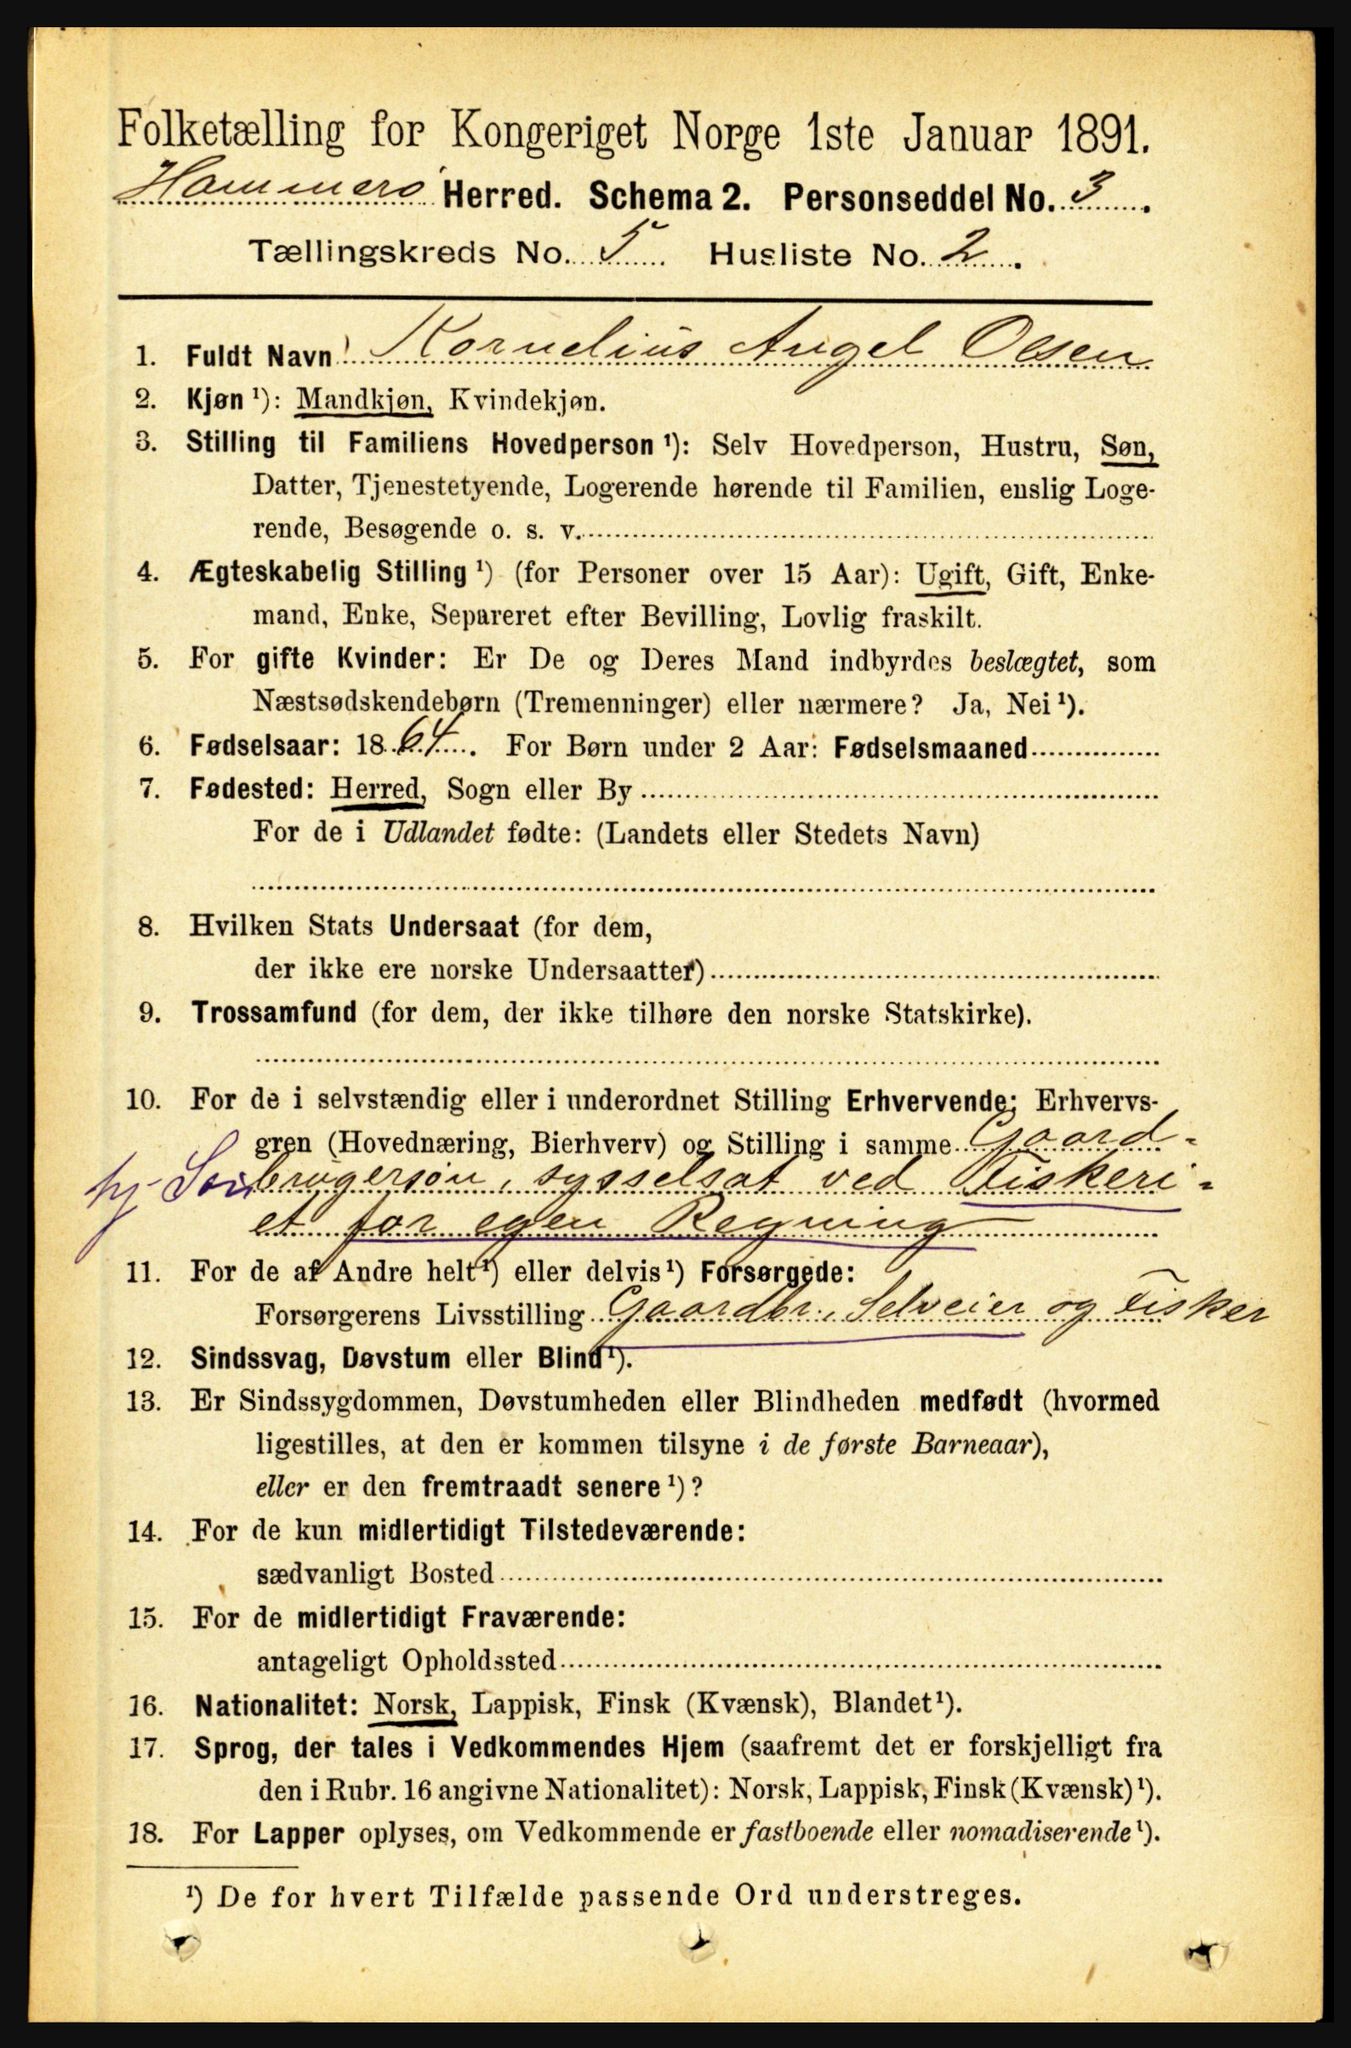 Folketælling for Kongeriget Norge 1ste Januar 1891.
Hammerø Herred. Schema 2. Personseddel No. 3.
Tællingskreds No. 5. Husliste No. 2.
1. Fuldt Navn Kornelius Angel Olsen
2. Kjøn ¹): Mandkjøn, Kvindekjøn.
3. Stilling til Familiens Hovedperson ¹): Selv Hovedperson, Hustru, Søn,
Datter, Tjenestetyende, Logerende hørende til Familien, enslig Loge-
rende, Besøgende o. s. v.
4. Ægteskabelig Stilling ¹) (for Personer over 15 Aar): Ugift, Gift, Enke-
mand, Enke, Separeret efter Bevilling, Lovlig fraskilt.
5. For gifte Kvinder: Er De og Deres Mand indbyrdes beslægtet, som
Næstsødskendebørn (Tremenninger) eller nærmere? Ja, Nei ¹).
6. Fødselsaar: 1864. For Børn under 2 Aar: Fødselsmaaned
7. Fødested: Herred, Sogn eller By
For de i Udlandet fødte: (Landets eller Stedets Navn)
8. Hvilken Stats Undersaat (for dem,
der ikke ere norske Undersaatter)
9. Trossamfund (for dem, der ikke tilhøre den norske Statskirke).
10. For de i selvstændig eller i underordnet Stilling Erhvervende: Erhvervs-
gren (Hovednæring, Bierhverv) og Stilling i samme Gaard-
hj Søn brugersøn, sysselsat ved Fiskeri-
et for egen Regning
11. For de af Andre helt ¹) eller delvis ¹) Forsørgede:
Forsørgerens Livsstilling Gaardbr., Selveier og Fisker
12. Sindssvag, Døvstum eller Blind ¹).
13. Er Sindssygdommen, Døvstumheden eller Blindheden medfødt (hvormed
ligestilles, at den er kommen tilsyne i de første Barneaar),
eller er den fremtraadt senere ¹)?
14. For de kun midlertidigt Tilstedeværende:
sædvanligt Bosted
15. For de midlertidigt Fraværende:
antageligt Opholdssted
16. Nationalitet: Norsk, Lappisk, Finsk (Kvænsk), Blandet ¹).
17. Sprog, der tales i Vedkommendes Hjem (saafremt det er forskjelligt fra
den i Rubr. 16 angivne Nationalitet): Norsk, Lappisk, Finsk (Kvænsk) ¹).
18. For Lapper oplyses, om Vedkommende er fastboende eller nomadiserende ¹).
¹) De for hvert Tilfælde passende Ord understreges.